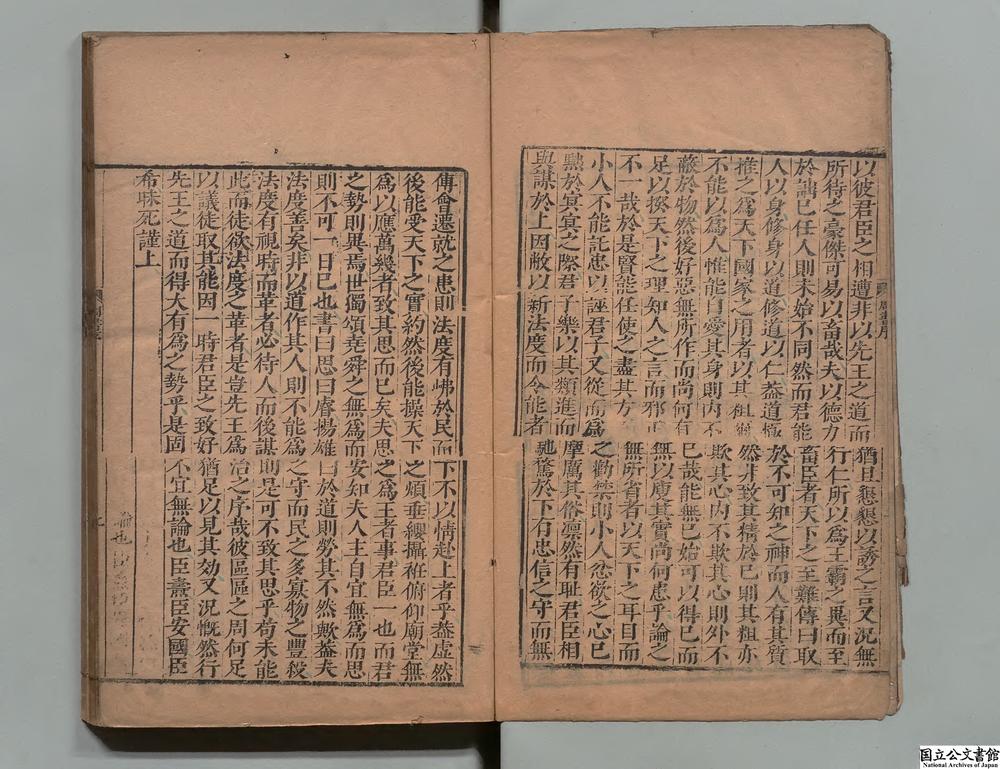 周書序
以彼君臣之相遭非以先王之道而猶且懇懇以誘之言又況無
所待之豪傑可易以畜哉夫以德力行仁所以為王霸之異而至
於詘已任人則未始不同然而君能畜臣者天下之至難傳曰取
人以身修身以道修道以仁蓋道極於不可知之神而人有其質
推之為天下國家之用者以其粗爾然非致其精於己則其粗亦
不能以為人惟能自愛其身則內不欺其心內不欺其心則外不
蔽於物然後好惡無所作而尚何有己哉能無已始可以得已而
足以揆天下之理知人之言而邪正無以廋其實尚何患乎論之
不一哉於是賢能任使之盡其方無所省者以天下之耳目而
小人不能託忠以誣君子又從而為之勸禁則小人忿欲之心已
黜於冥冥之際君子樂以其類進而摩厲其俗凛然有恥君臣相
與謀於上因敝以新法度而令能者馳騖於下有忠信之守而無
傅會遷就之患則法度有岪於民而下不以情赴上者乎蓋虛然
後能受天下之實約然後能操天下之煩垂纓攝衽俯仰廟堂無
為以應萬幾者致其思而已矣夫思之為王者事君臣一也而君
之勢則異焉世獨頌堯舜之無為而安知夫人主自宜無為而思
則不可一日已也書曰思曰睿揚雄曰於道則勞其不然歟蓋夫
法度善矣非以道作其人則不能為之守而民之多寡物之豐殺
法度有視時而革者必待人而後謀則是可不致其思乎苟未能
此而徒欲法度之革者是豈先王為治之序哉彼區區之周何足
以議徒取其能因一時君臣之致好猶足以見其効又況慨然行
先王之道而得大有為之勢乎是固不宜無論也臣燾臣安國臣
希昧死謹上
国立公文書館
National Archives of Japan